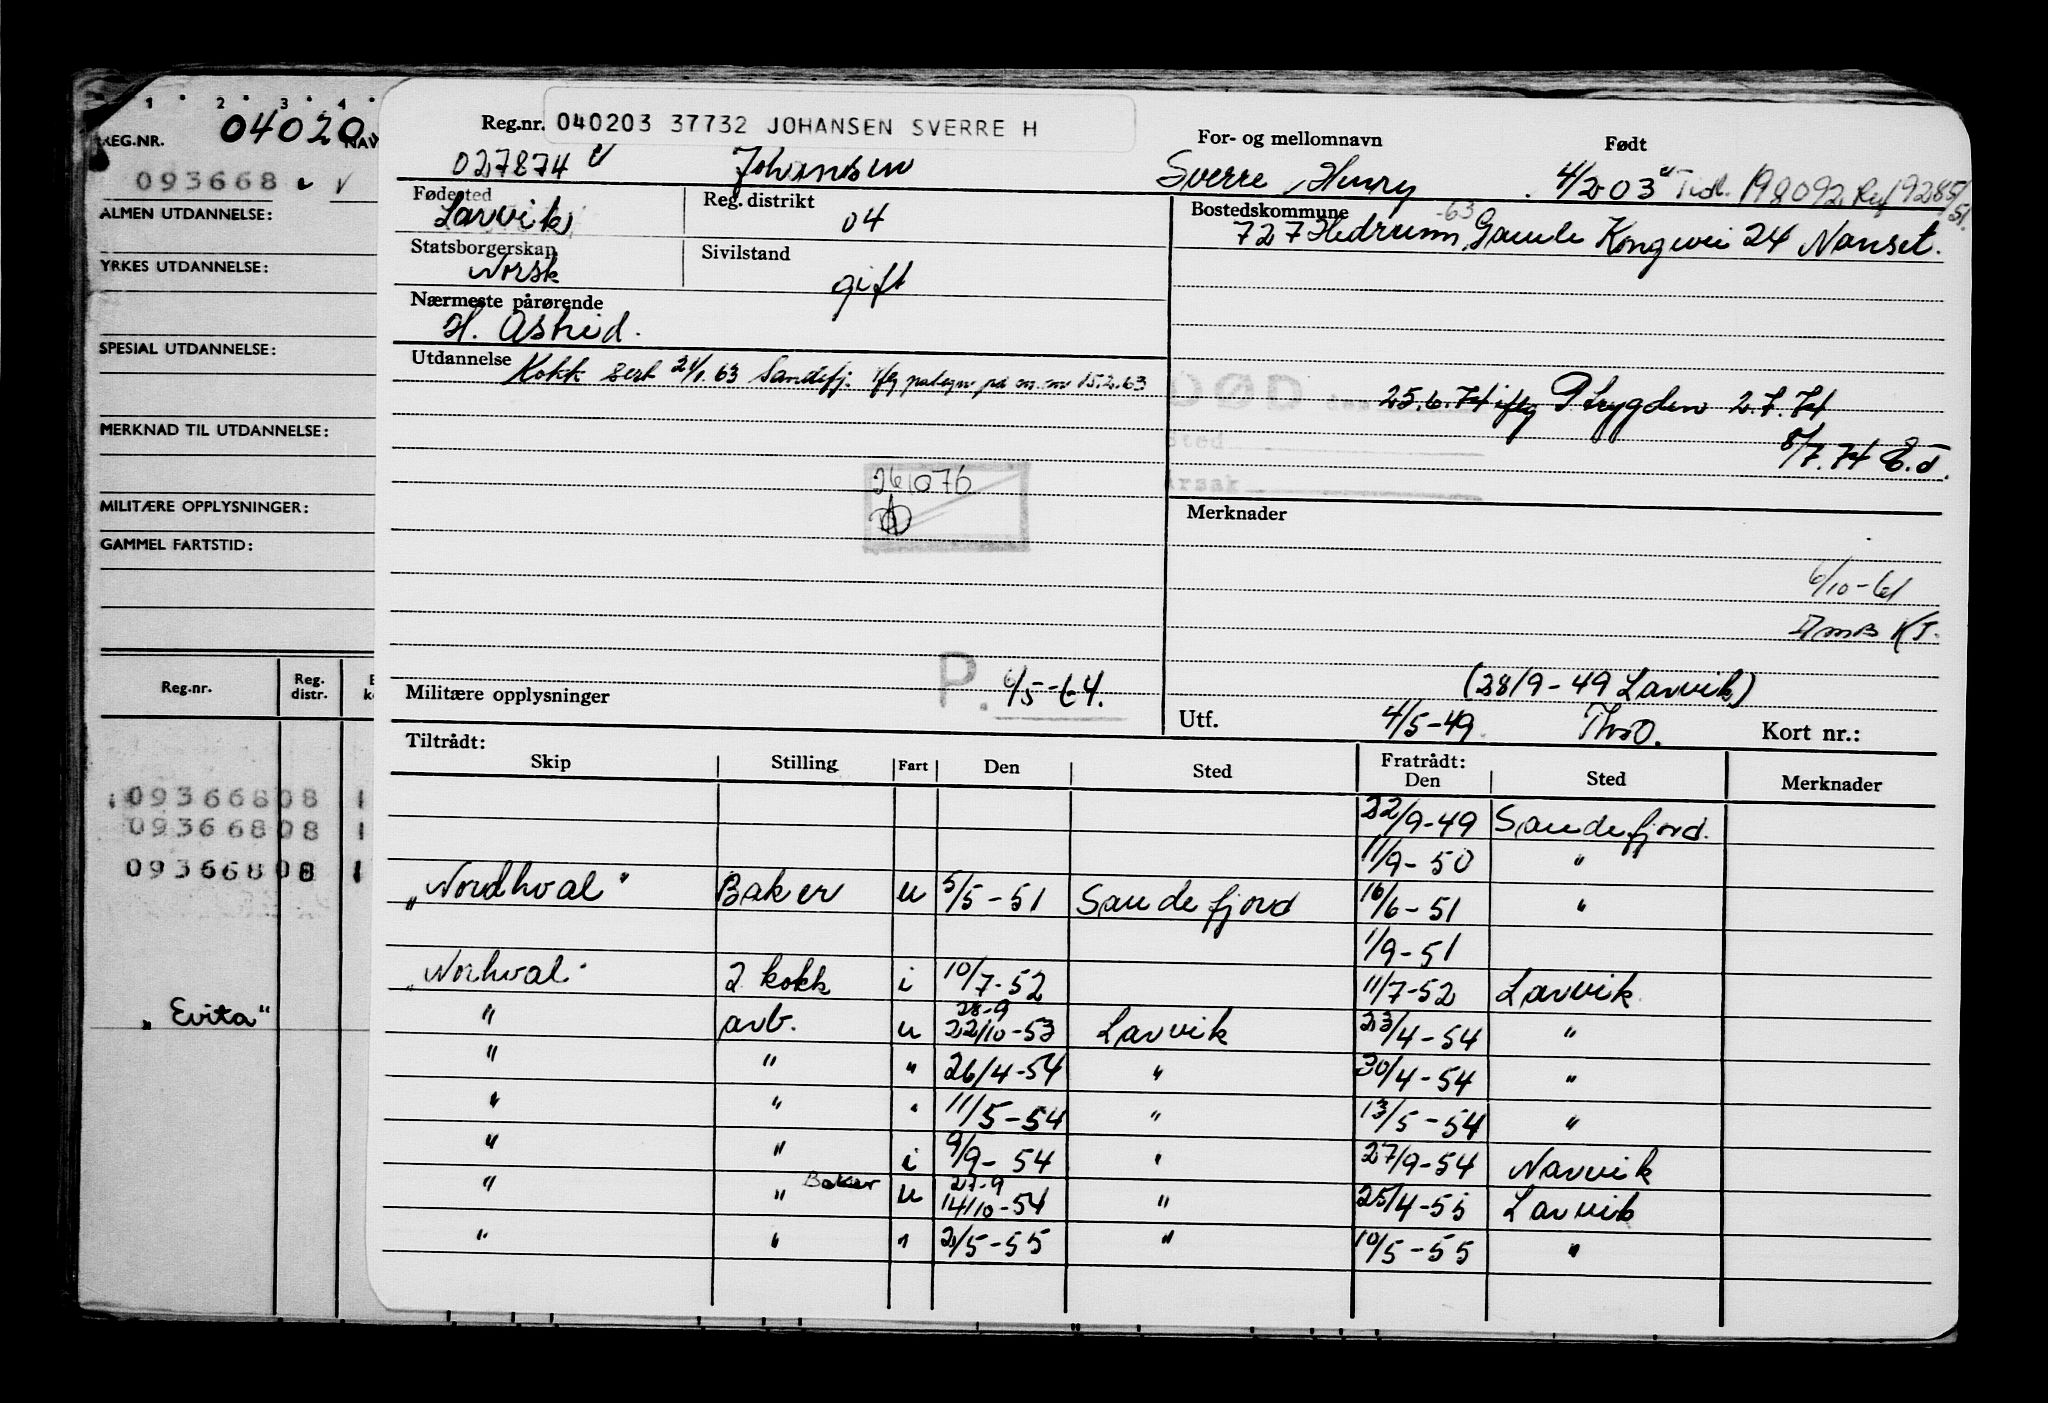 1 2 3 4
REG.NR. 04020 NAV
093668 v
ALMEN UTDANNELSE:
YRKES UTDANNELSE:
SPESIAL UTDANNELSE:
MERKNAD TIL UTDANNELSE:
MILITÆRE OPPLYSNINGER:
GAMMEL FARTSTID:
Reg.nr. Reg. distr.
09366808 1
09366808 1
09366808 1
„Evita"
Reg.nr. 040203 37732 JOHANSEN SVERRE H
For- og mellomnavn Født
027874 Johansen Sverre Henry 4/2 03 Tidl. 198092
Fødested Larvik Reg. distrikt 04
Bostedskommune -63
727 Hedrum, Gamle Kongevei 24 Nanset.
Statsborgerskap Norsk Sivilstand gift
Nærmeste pårørende
H. Astrid.
Utdannelse Kokk sert 24/1.63 Sandefj. ifg påtegn på m.m 15.2.63
DØD den 25.6.74 ifg Trygden 2.7.74
sted
8/7.74 E.T.
Årsak
261076
Merknader
6/10-61
KT.
P. 6/5-64.
(28/9-49 Larvik)
Militære opplysninger
Utf. 4/5-49. ThO. Kort nr.:
Tiltrådt: Fratrådt:
Skip Stilling Fart Den Sted Den Sted Merknader
22/9-49 Sandefjord.
11/9-50 "
„Nordhval" Baker u 5/5-51 Sandefjord 16/6-51 "
1/9-51
„Norhval" 2 kokk i 10/7-52 11/7-52 Larvik
" arb. u 28-9 22/10-53 Larvik 23/4-54 "
" " " 26/4-54 " 30/4-54 "
" " " 11/5-54 " 13/5-54 "
" " i 9/9-54 " 27/9-54 Narvik
" " Baker u 27-9 14/10-54 " 25/4-55 Larvik
" " " 2/5-55 " 10/5-55 "